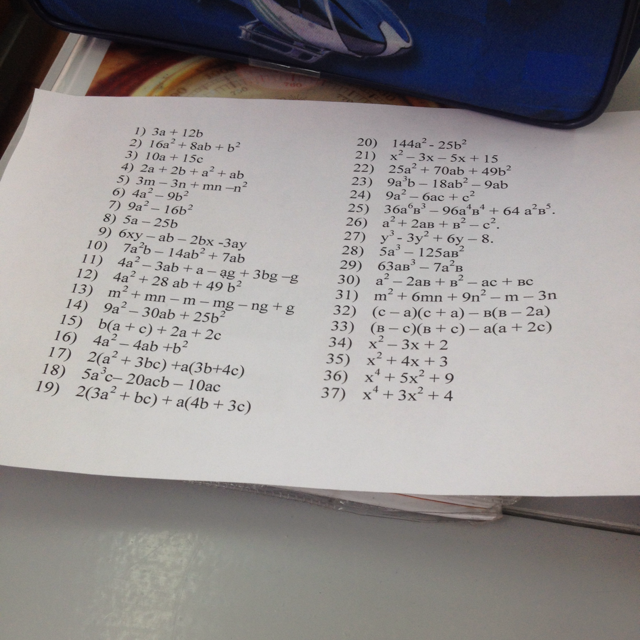 1) 3a + 12b
2) 16a² + 8ab + b²
3) 10a + 15c
4) 2a + 2b + a² + ab
5) 3m – 3n + mn –n²
6) 4a² – 9b²
7) 9a² – 16b²
8) 5a – 25b
9) 6xy – ab – 2bx -3ay
10) 7a²b – 14ab² + 7ab
11) 4a² – 3ab + a – ag + 3bg –g
12) 4a² + 28 ab + 49 b²
13) m² + mn – m – mg – ng + g
14) 9a² – 30ab + 25b²
15) b(a + c) + 2a + 2c
16) 4a² – 4ab +b²
17) 2(a² + 3bc) +a(3b+4c)
18) 5a³c– 20acb – 10ac
19) 2(3a² + bc) + a(4b + 3c)
20) 144a² - 25b²
21) x² – 3x – 5x + 15
22) 25a² + 70ab + 49b²
23) 9a³b – 18ab² – 9ab
24) 9a² – 6ac + c²
25) 36a⁶в³ – 96a⁴в⁴ + 64 a²в⁵.
26) a² + 2aв + в² – c².
27) y³ - 3y² + 6y – 8.
28) 5a³ – 125aв²
29) 63aв³ – 7a²в
30) a² – 2aв + в² – ac + вc
31) m² + 6mn + 9n² – m – 3n
32) (c – a)(c + a) – в(в – 2a)
33) (в – c)(в + c) – a(a + 2c)
34) x² – 3x + 2
35) x² + 4x + 3
36) x⁴ + 5x² + 9
37) x⁴ + 3x² + 4